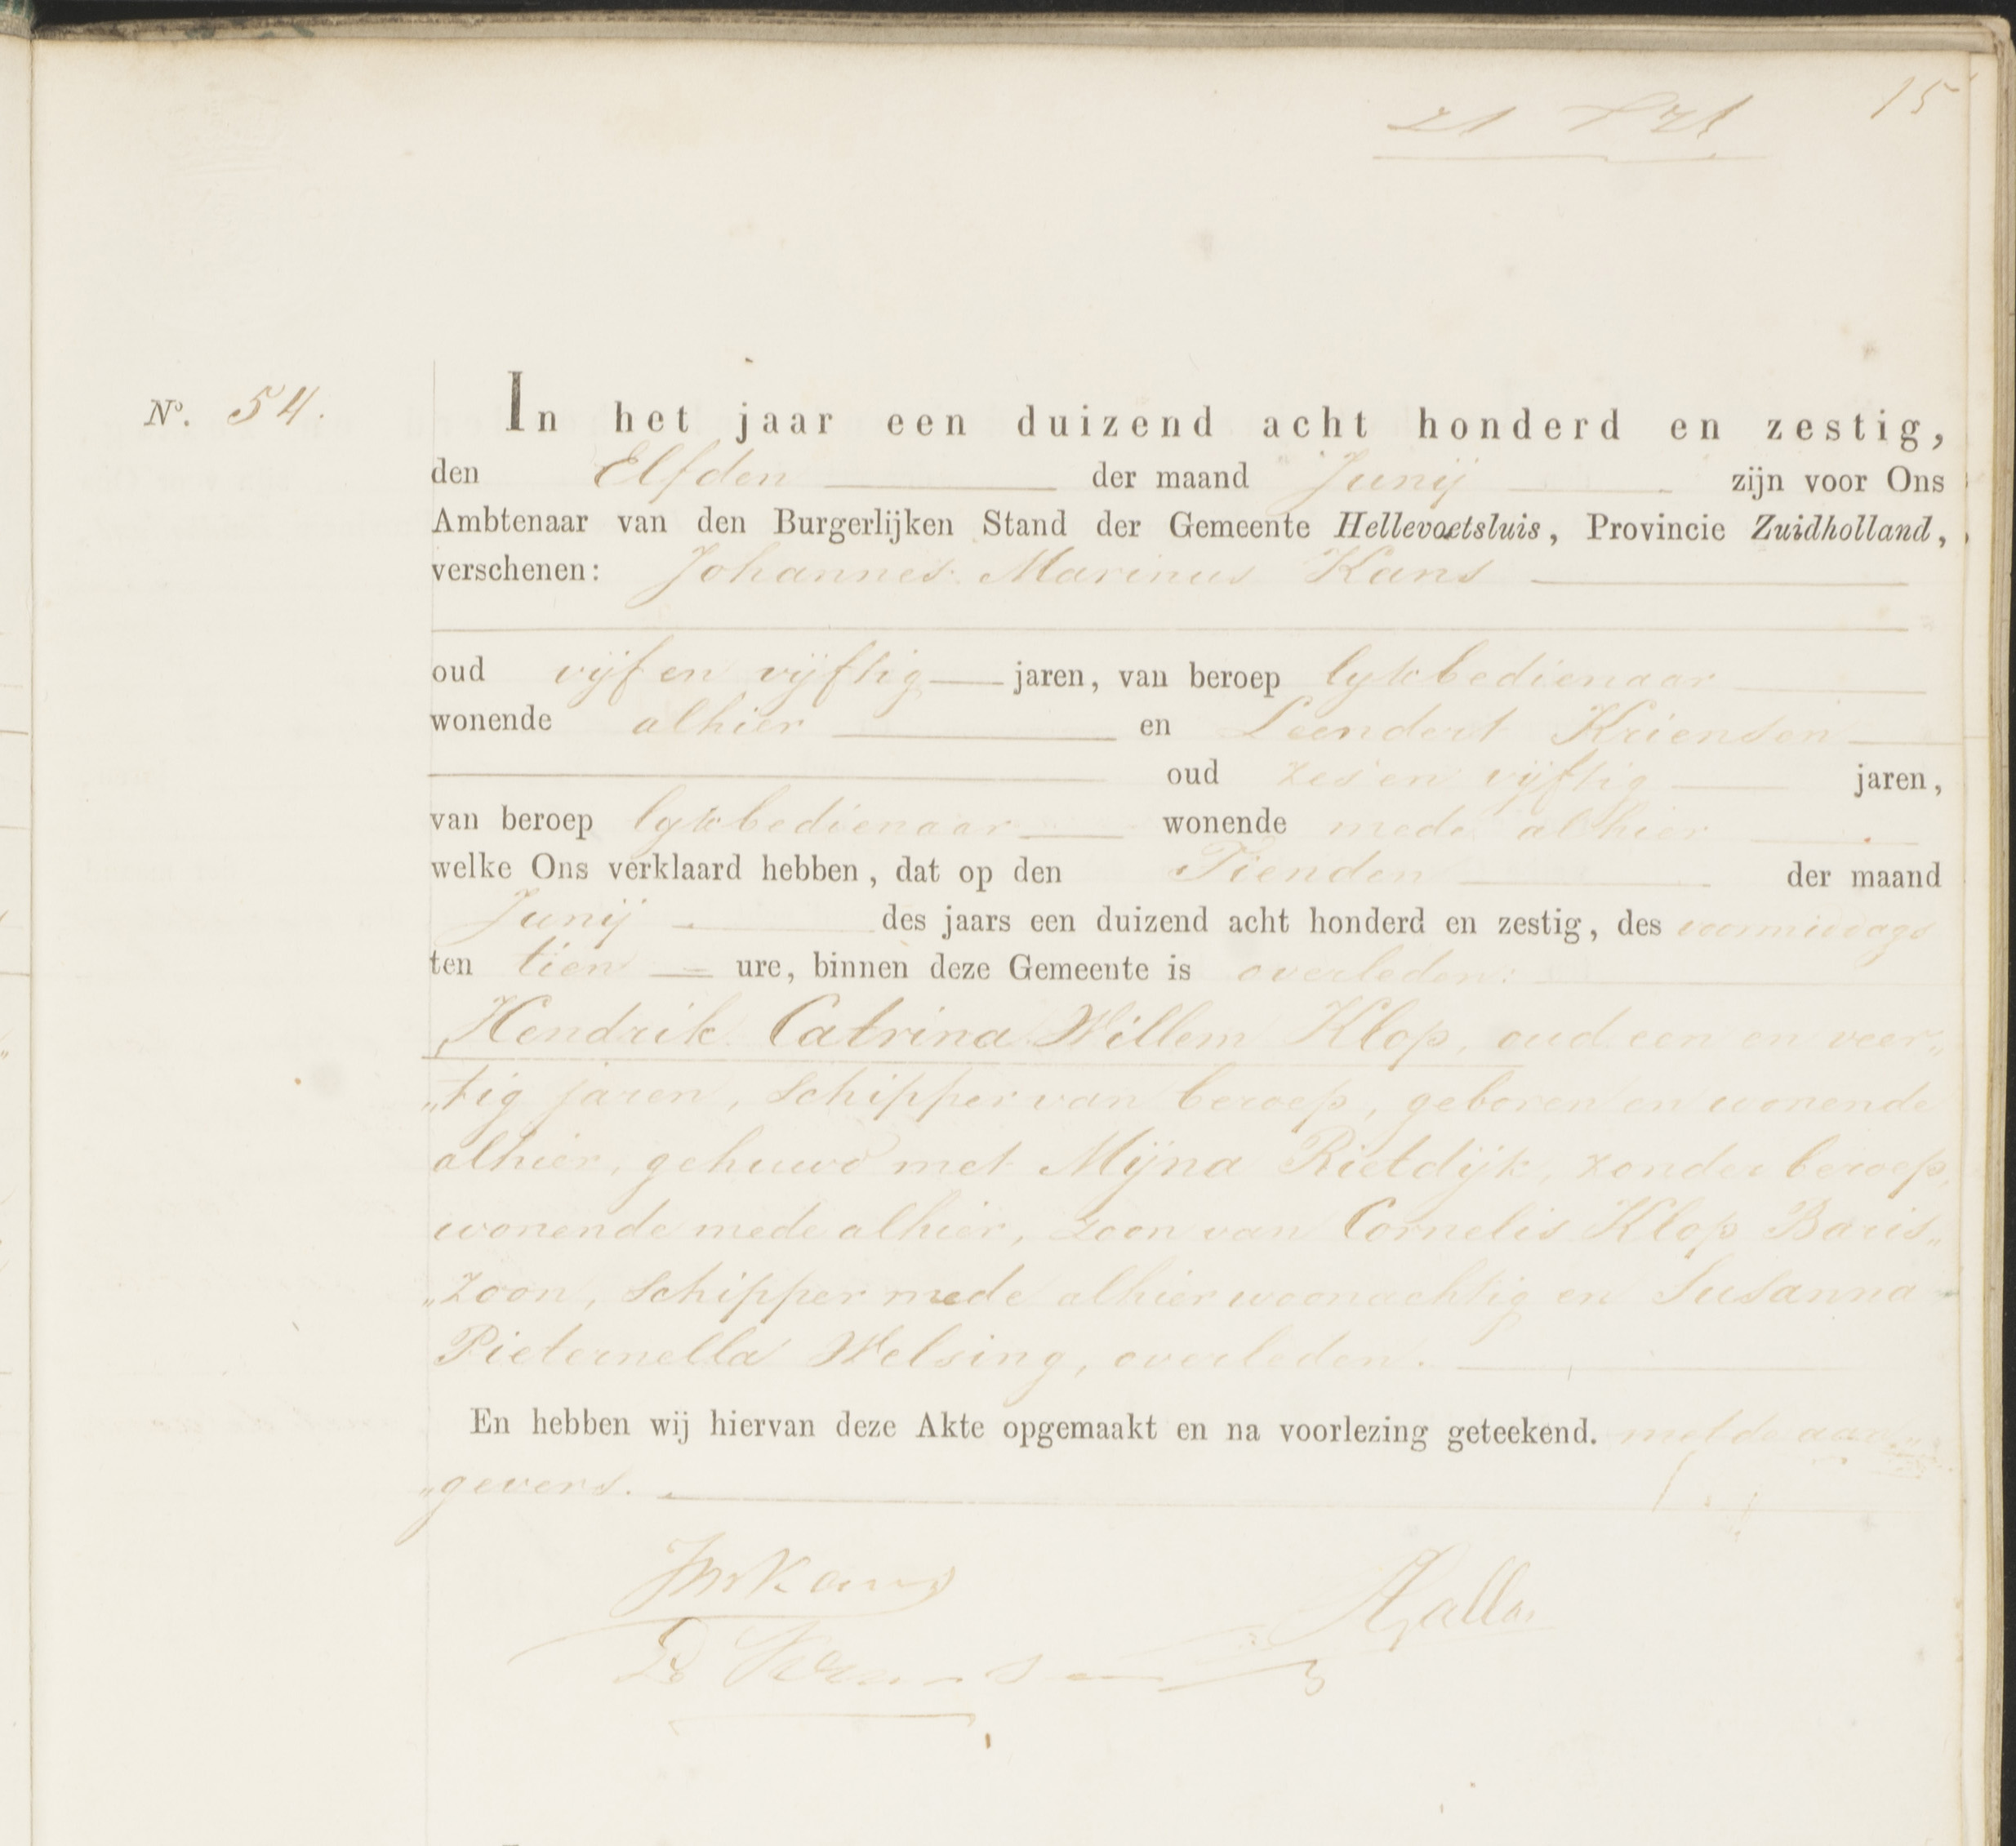 15
N°. 54.
In het jaar een duizend acht honderd en zestig,
den Elfden der maand Junij zijn voor Ons
Ambtenaar van den Burgerlijken Stand der Gemeente Hellevoetsluis, Provincie Zuidholland,
verschenen: Johannes Marinus Kans
oud vijf en vijftig jaren, van beroep lykbedienaar
wonende alhier en Leendert Kriensen
oud zes en vijftig jaren,
van beroep lykbedienaar wonende mede alhier
welke Ons verklaard hebben, dat op den Tienden der maand
Junij des jaars een duizend acht honderd en zestig, des voormiddags
ten tien ure, binnen deze Gemeente is overleden:
Hendrik Catrina Willem Klop, oud een en veer„
„tig jaren, schipper van beroep, geboren en wonende
alhier, gehuwd met Mijna Rietdijk, zonder beroep,
wonende mede alhier, zoon van Cornelis Klop Baris„
„zoon, schipper mede alhier woonachtig en Susanna
Pieternella Welsing, overleden.
En hebben wij hiervan deze Akte opgemaakt en na voorlezing geteekend. met de aan„
„gevers.
JMKans